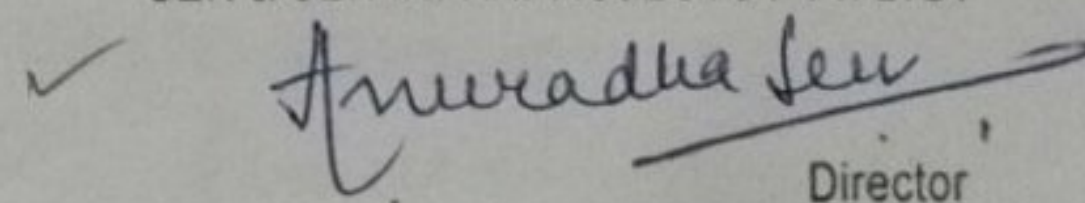 Anuradha Sen
Director